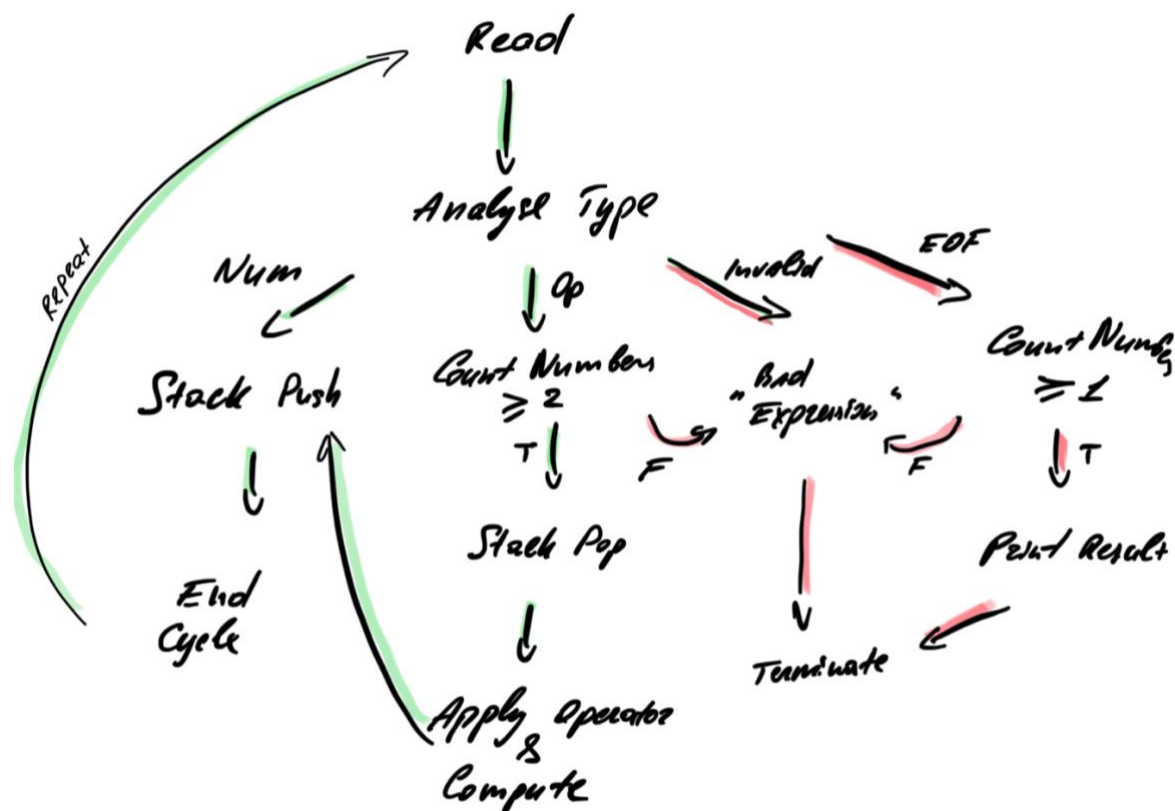 Read
Analyse Type
Repeat
Num
Op
Invalid
EOF
Stack Push
Count Numbers
≥ 2
"Bad
Expression"
Count Numbers
≥ 1
T
F
F
T
Stack Pop
Print Result
End
Cycle
Terminate
Apply Operator
&
Compute